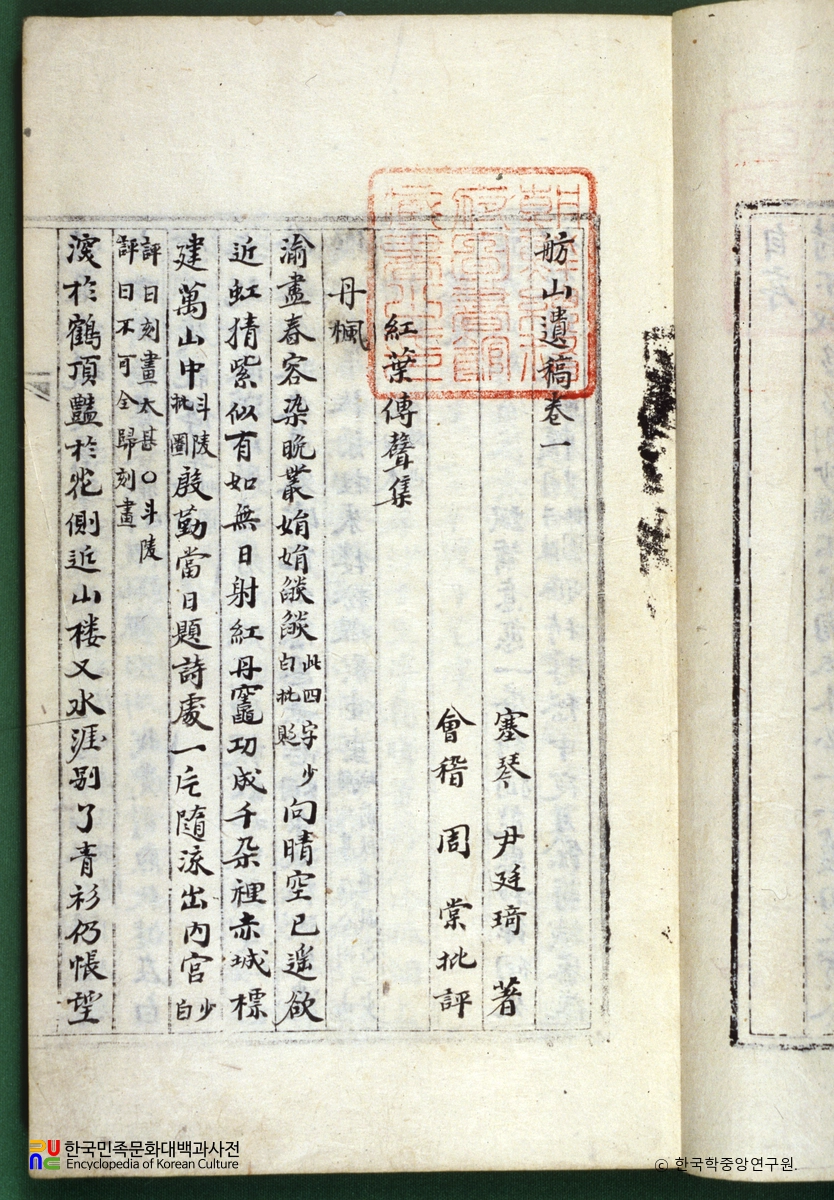 舫山遺稿卷一
塞琴 尹廷琦 著
會稽 周棠 批評
紅葉傳聲集
丹楓
渝盡春容染晩叢娟娟燄燄此四字少白批貶向晴空已遥欲
近虹猜紫似有如無日射紅丹竈功成千朶裡赤城標
建萬山中斗陵批圖殷勤當日題詩處一片随流出內宮少白
評曰刻畫太甚○斗陵
評曰不可全歸刻畫
深於鶴頂豔於花側近山樓又水涯別了青衫仍悵望
自序
한국민족문화대백과사전
Encyclopedia of Korean Culture
ⓒ 한국학중앙연구원.